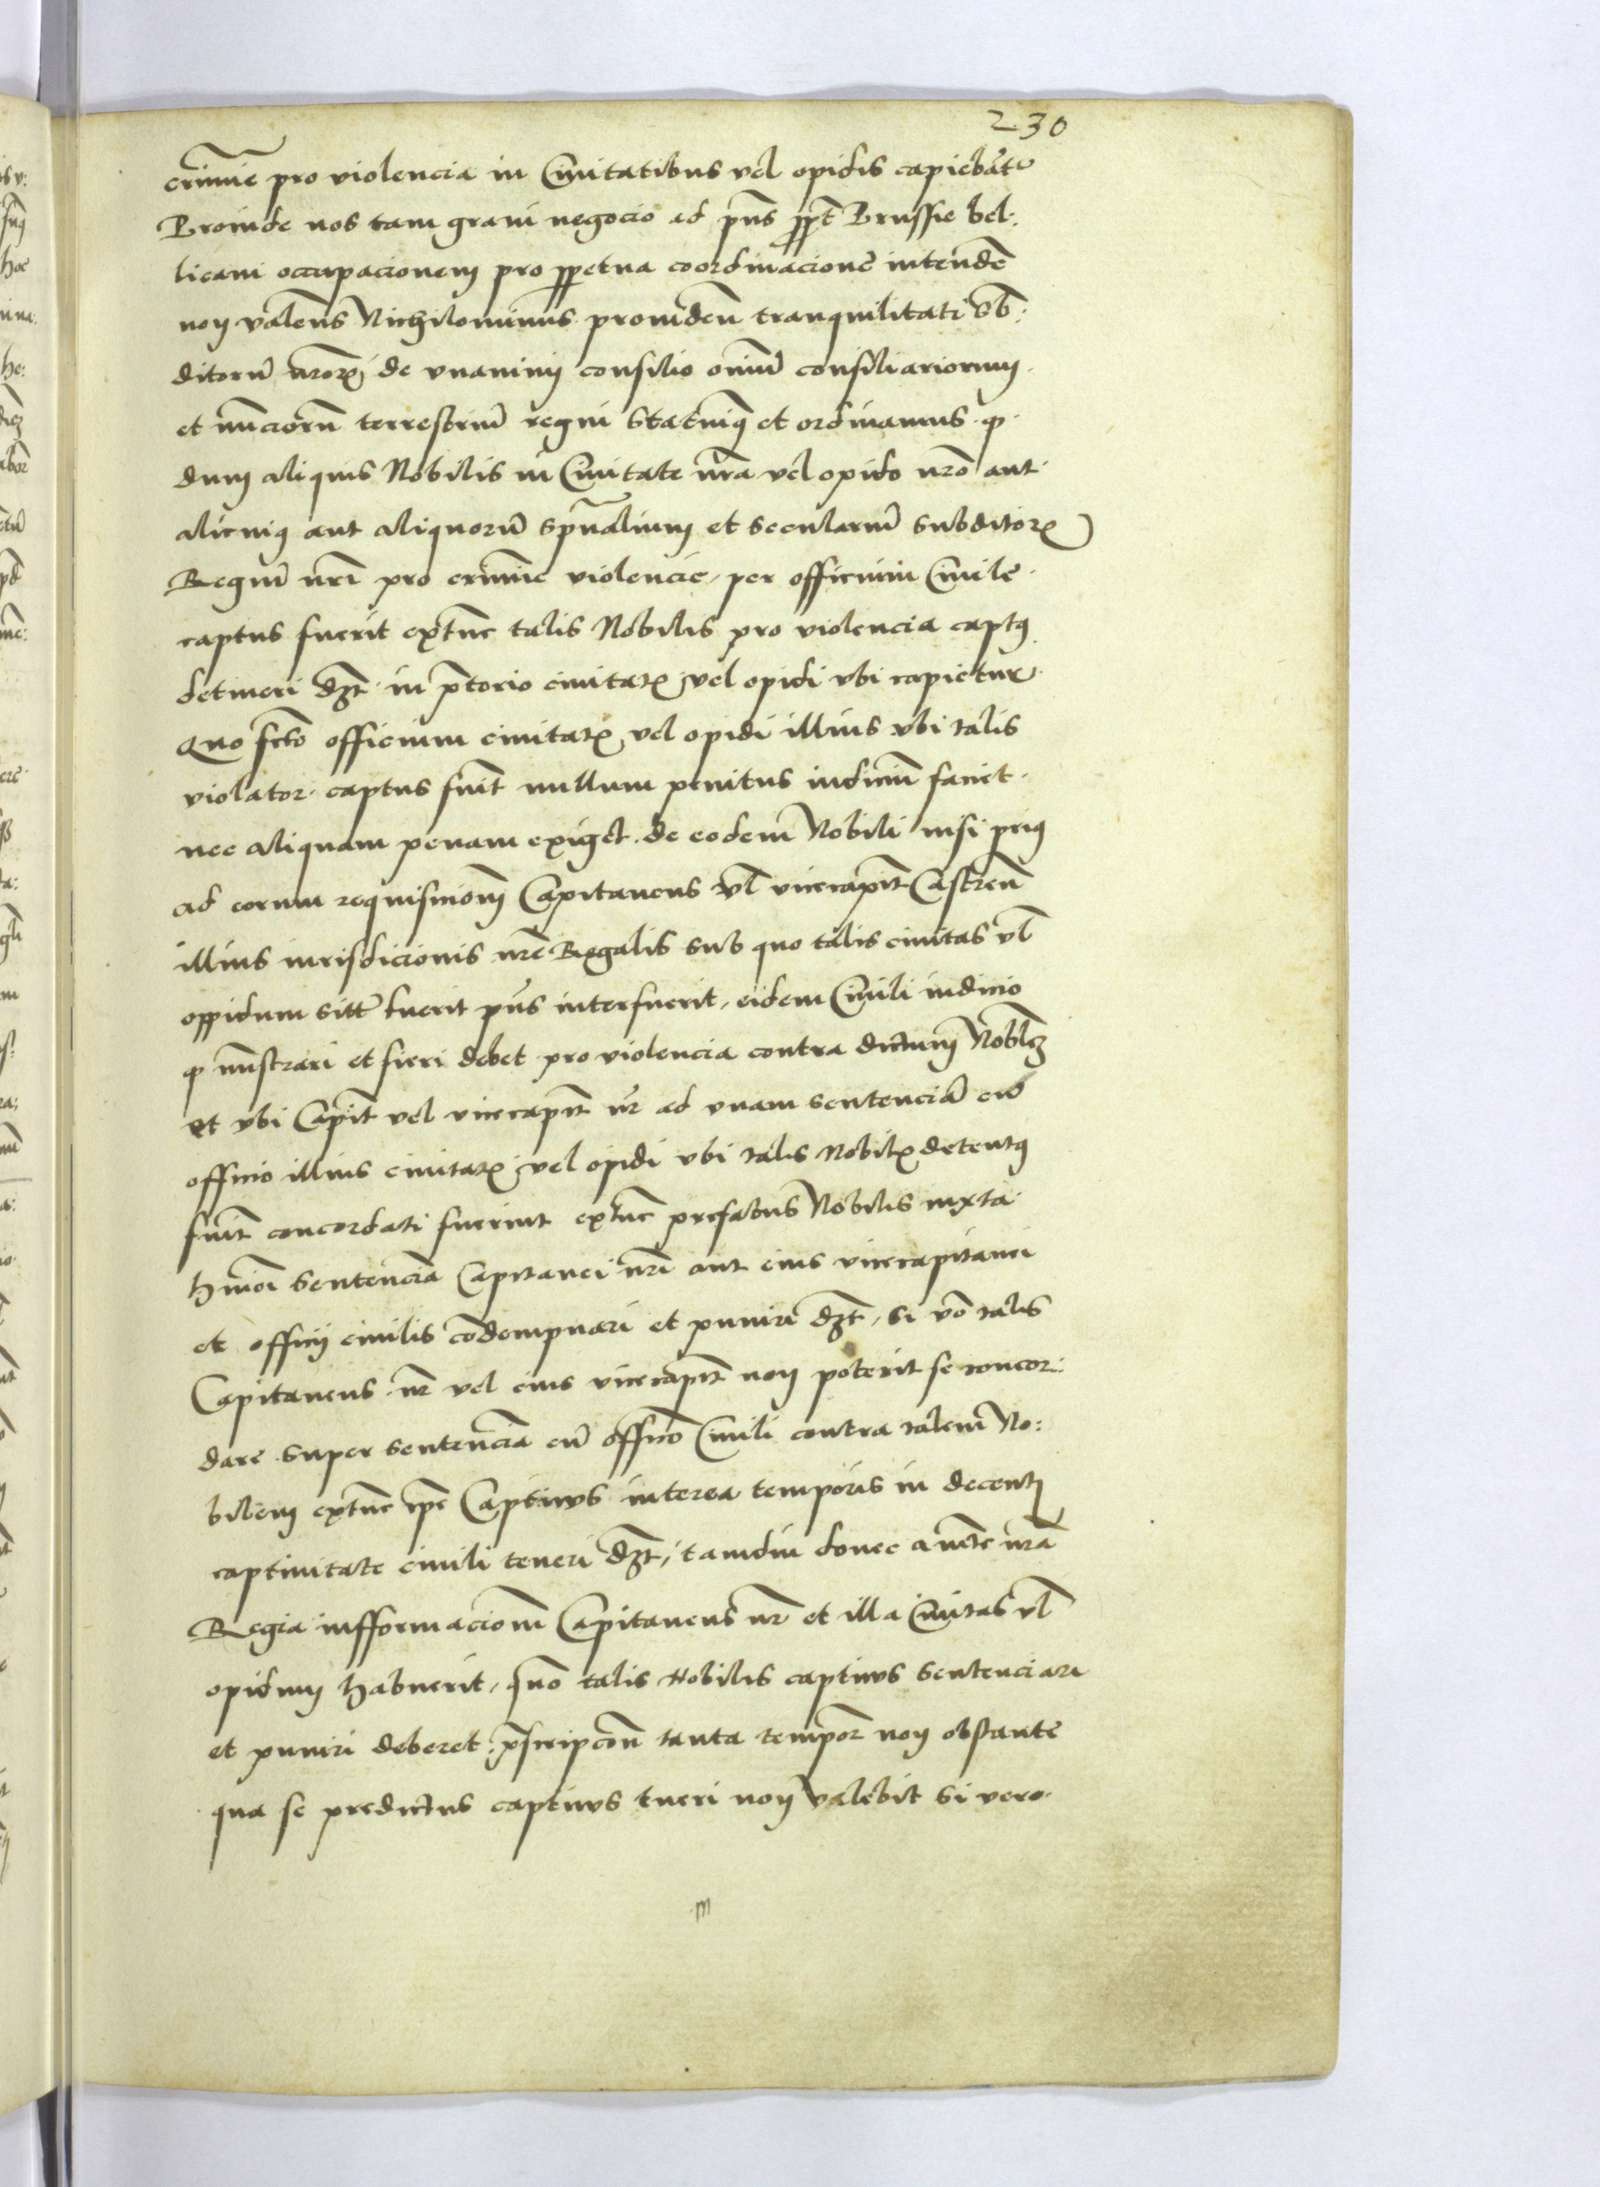 230
crimine pro violencia in Civitatibus vel opidis capiebat
Proinde nos tam gravi negocio ad pns ppt Brussie bel:
licam occupacionem pro ppetua coordinacione intenden
non valens Nichilominus providen tranquilitati sub:
ditoru nror de unanimi consilio oniu consiliariorum
et nuncioru terrestriu regni Statuimus et ordinamus q
dum aliquis Nobilis in Civitate nra vel opido nro aut
alicuius aut aliquoru spualium et Seculariu Subditor
Regni nri pro crimine violencie, per officium Civile
captus fuerit extunc talis Nobilis pro violencia captus
detineri dz in ptorio civitatis vel opidi ubi capietur
Quo fcto officium civitatis vel opidi illius ubi talis
violator captus fuit nullum penitus iudiciu faciet
nec aliquam penam exiget de eodem Nobili nisi prius
ad eorum requisicionem Capitaneus vl vicecapit Castren
illius iurisdicionis nre Regalis sub quo talis civitas vl
oppidum situ fuerit pns interfuerit, eidem Civili iudicio
q mnstrari et fieri debet pro violencia contra dictum Noblem
et ubi Capit vel vicecapit nr ad unam sentenciam cu
officio illius civitatis vel opidi ubi talis Nobilis detentus
fuit concordati fuerint extunc prefatus Nobilis iuxta
hmoi sentencia Capitanei nri aut eius vicecapitanei
et officii civilis condempnari et puniri dz, si vo talis
Capitaneus nr vel eius vicecapit non poterit se concor:
dare super sentencia cu officio Civili contra talem No:
bilem extunc ipe Captivus interea temporis in decenti
captivitate civili teneri dz, tamdiu donec a mte nra
Regia informacionem Capitaneus nr et illa Civitas vl
opidum habuerit, quo talis Nobilis captivus sentenciari
et puniri deberet, pscripcon tanta tempor non obstante
qua se predictus captivus tueri non valebit Si vero